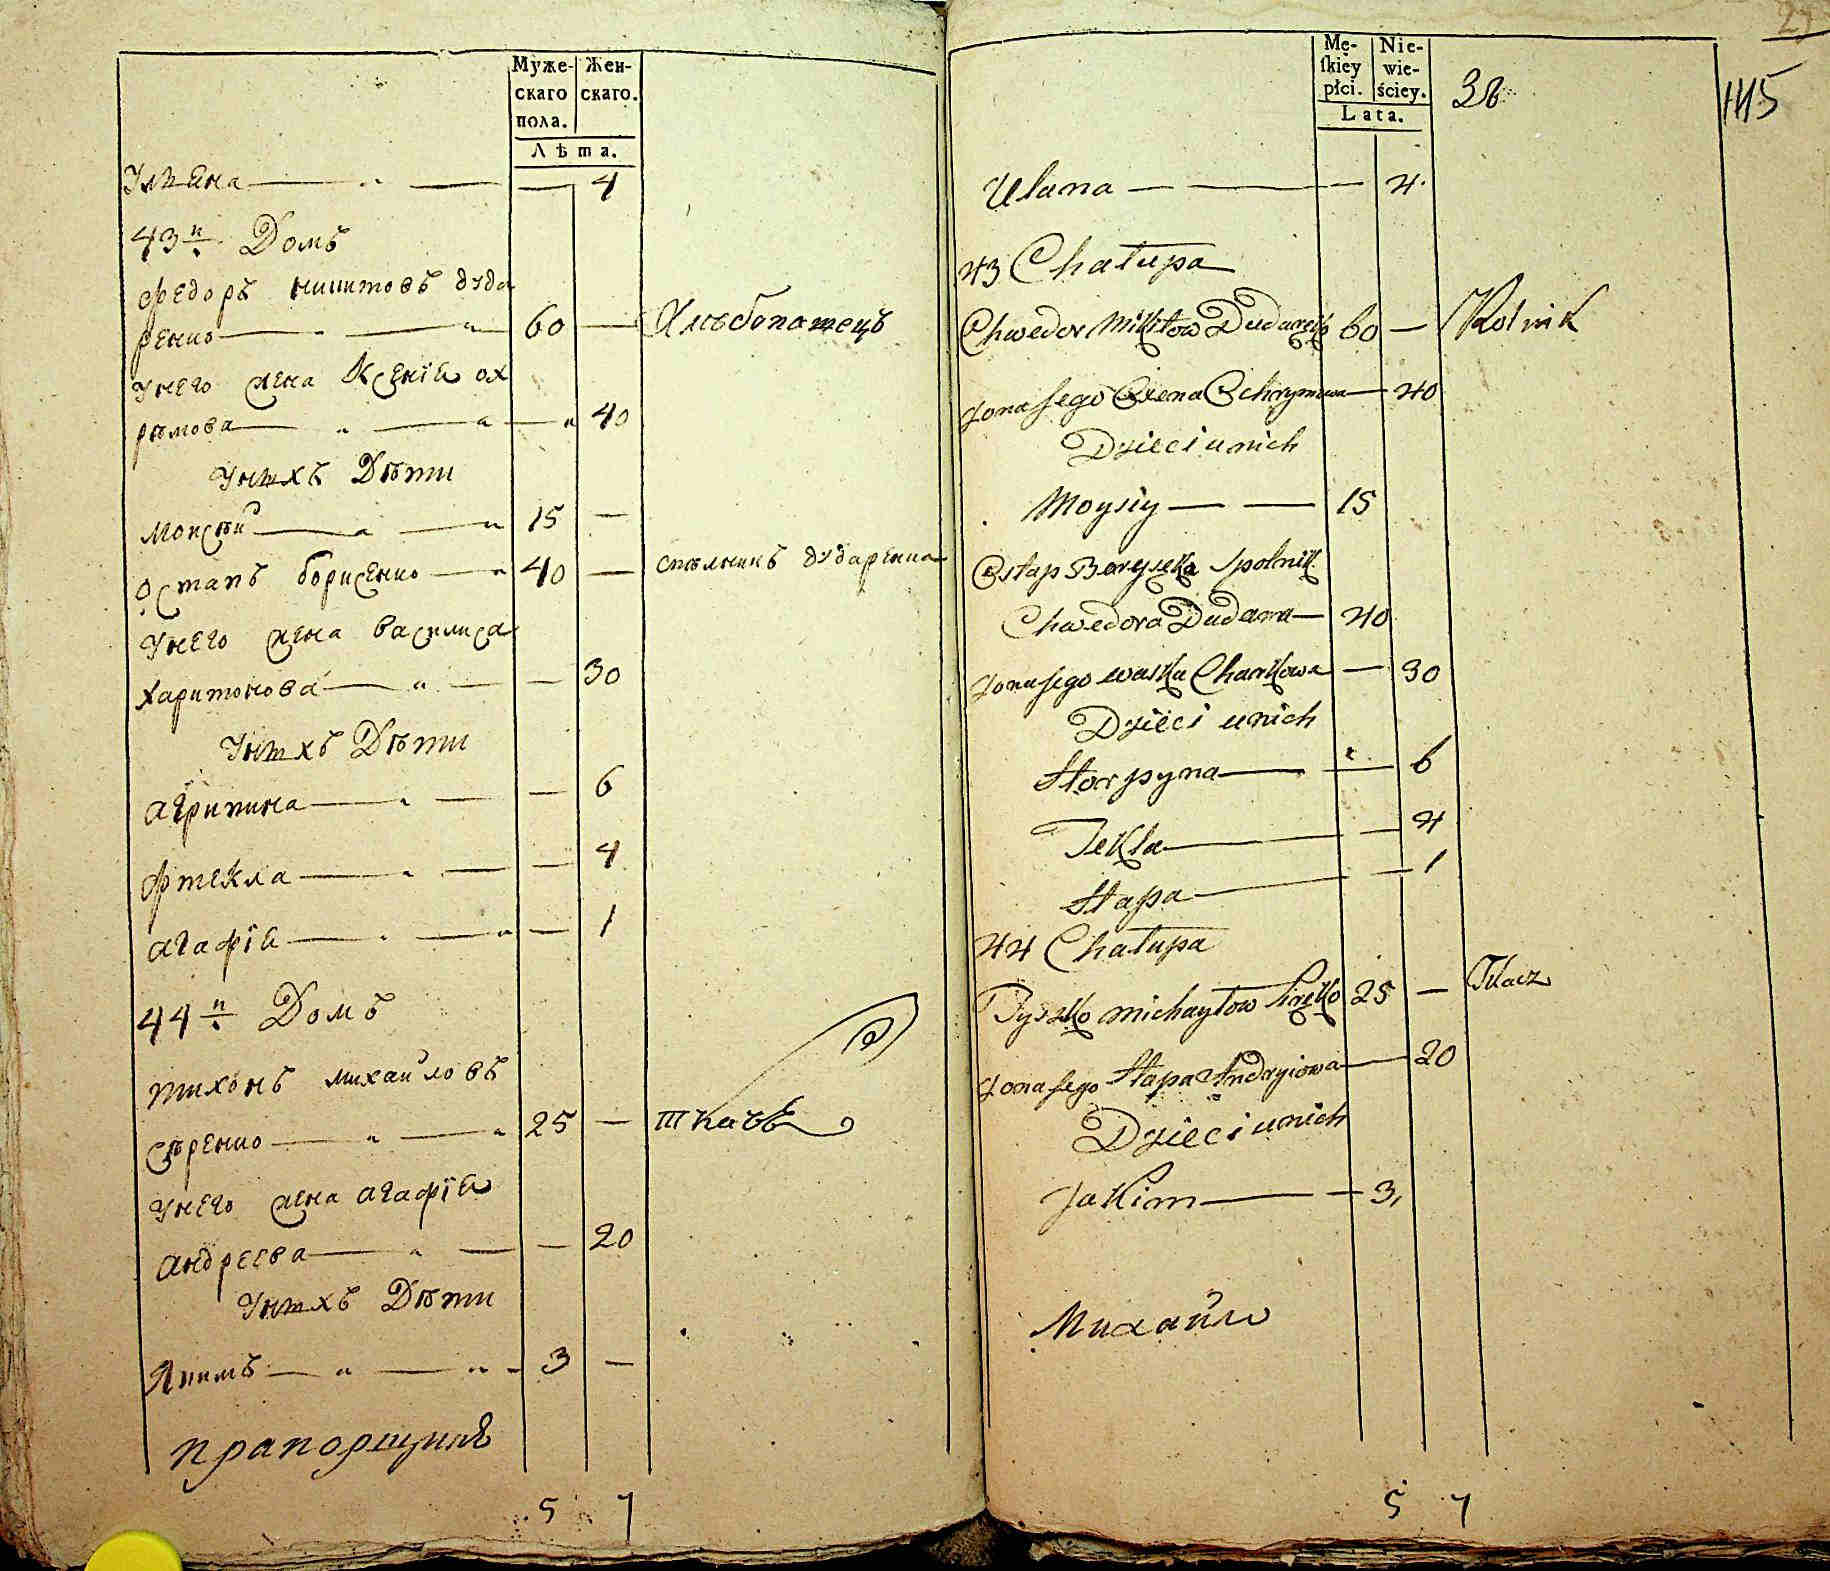 Муже-
скаго
пола.
Жен-
скаго.
Лѣта.
Ульяна — — — 4
43й Домъ
Федоръ Никитовъ Дуда
ренко — — 60 — Хлѣбопашецъ
Унего жена Ксенїя Ох
рѣмова — — — 40
Унихъ Дѣти
Моисѣй — — 15 —
Остапъ Борисенко — 40 — спѣлникъ Дударенка
Унего жена Василиса
Харитонова — — — 30
Унихъ Дѣти
Агрипина — — — 6
Фтекла — — — 4
Агафїя — — — 1
44й Домъ
Тихонъ Михайловъ
Сѣренко — — 25 — Ткачъ
Унего жена Агафїя
Андреева — — — 20
Унихъ Дѣти
Якимъ — — 3 —
прапорщикъ
5 7
27
Mę-
skiey
płci.
Nie-
wie-
ściey.
Lata.
38
1115
Ulana — — — 4.
43 Chałupa
Chwedor Mikitow Dudaręko 60 — Rolnik
Żona jego Xiena Ochrymowa — 40
Dzieci u nich
Moysiy — — 15
Ostap Borysęko Spolnik
Chwedora Dudarra — 40
Żona jego Waska Charkowa — 30
Dzieci u nich
Horpyna — — 6
Tekla — — 4
Hapa — — 1
44 Chałupa
Tyszko Michayłow Siręko 25 — Tkacz
Żona jego Hapa Andryiowa — 20
Dzieci u nich
Jakim — — 3,
Михайло
5 7